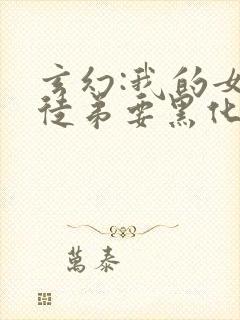 玄幻:我的女
徒弟要黑化
萬泰